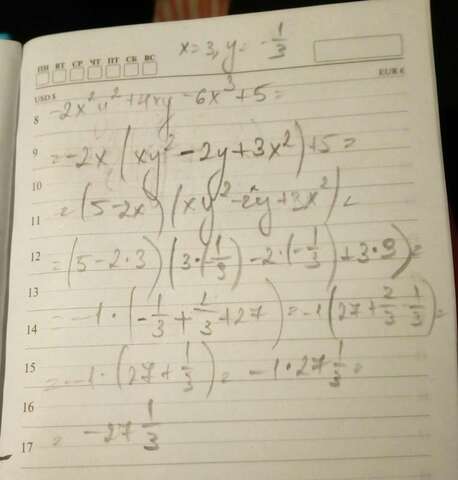 x=3, y=-1/3
ПН ВТ СР ЧТ ПТ СК ВС
USD $ EUR €
8 -2x²y²+4xy-6x³+5=
9 =-2x(xy²-2y+3x²)+5=
10
11 =(5-2x)(xy²-2y+3x²)=
12 =(5-2·3)(3·(1/9)-2·(-1/3)+3·9)=
13
14 =-1·(-1/3+2/3+27)=-1(27+2/3-1/3)=
15 =-1·(27+1/3)=-1·27 1/3=
16
17 =-27 1/3